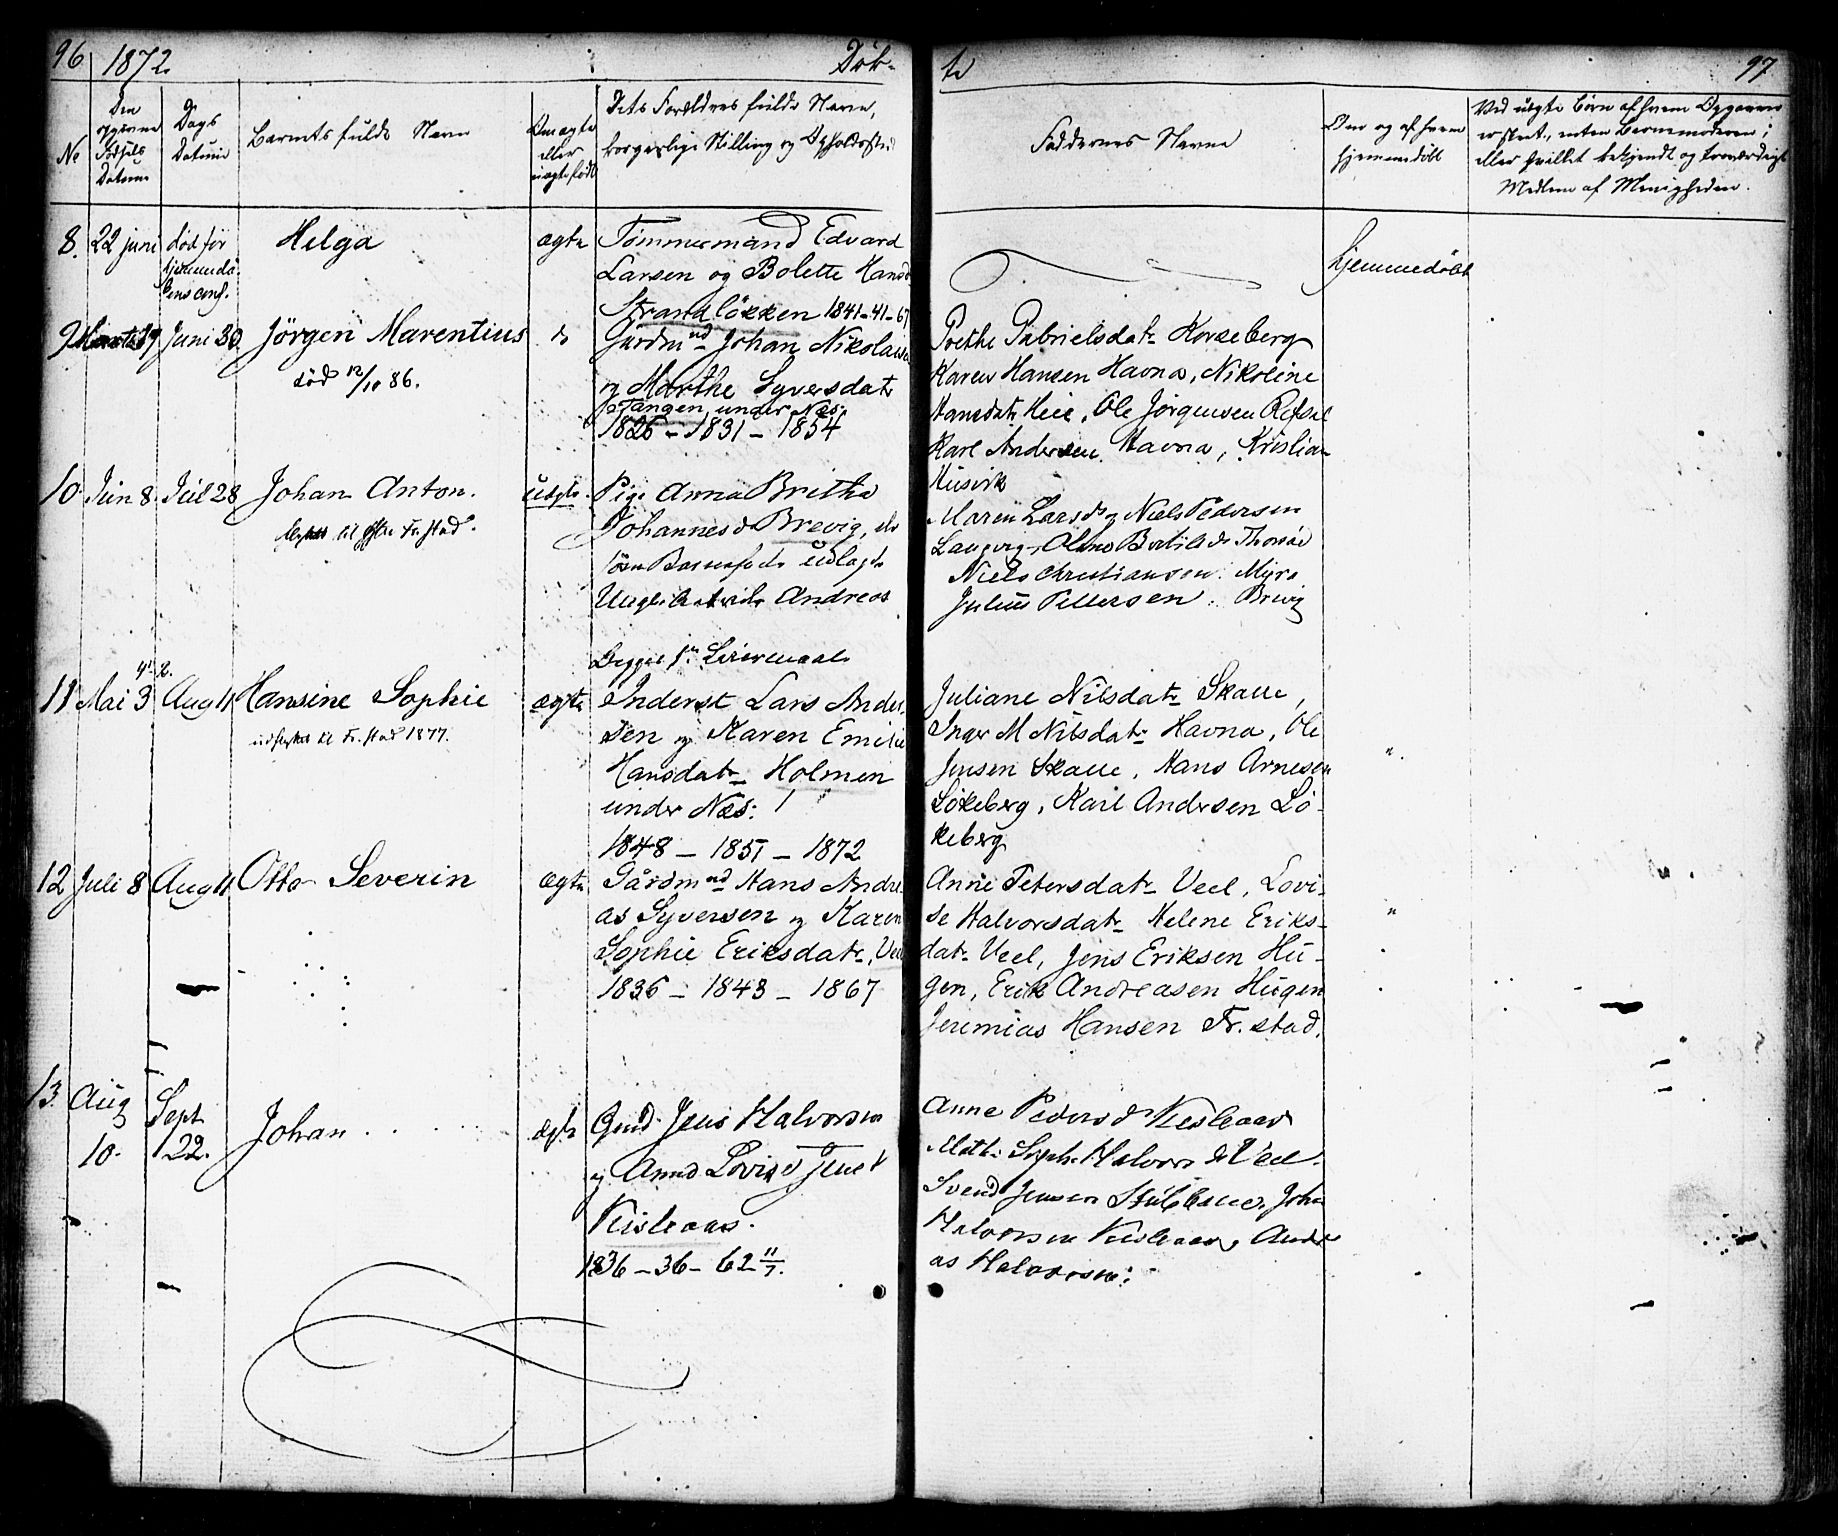 96 1872. Døb-
te 97
No
Den
opgivne
Fødsels
Datum
Dags
Datum
Barnets fulde Navn
Om ægte
eller
uægte født
Dets Forældres fulde Navn,
borgerlige Stilling og Opholdssted
Faddernes Navne
Om og af hvem
hjemmedøbt
Ved uægte Børn af hvem Opgaven
er skeet, enten Barnemoderen;
eller hvilket bekjendt og troværdigt
Medlem af Menigheden.
8. 22 juni død før
hjemmedå-
bens conf.
Helga
ægte
Tømmermand Edvard
Larsen og Bolette Hansd
Strandløkken 1841-41-67
hjemmedøbt
9 Juni 30 Jörgen Marentius
död 12/10 86.
Gårdmnd Johan Nikolaisen
og Marthe Syversdatr
Tangen under Næs.
1826 - 1831 - 1854
Gabrielsdatr Korseberg
Karen Hansen Havna, Nikoline
Hansdatr Heie, Ole Jörgensen
Karl Andersen Havna, Kristian
Husvik
10. Jun 8. Jul 28 Johan Anton.
til Fr.stad.
uægte.
Pige Anna Britha
Johannesd Brevig,
Barnefader udlagt
Ungkarl Andreas
Begges 1te Leiermaal
Maren Larsd og Niels Pedersen
Langvig, Thorsø
Niels Christiansen. Myra
Julius Pettersen. Brevig
11 Mai 3 Aug 11 Hansine Sophie
udflyttet til Fr.stad 1877.
ægte
Inderst Lars Ander-
sen og Karen Emilie
Hansdatr Holmen
under Næs:
1848 - 1851 - 1872
Juliane Nilsdatr Skaue,
Inger M Nilsdatr Havna, Ole
Jensen Skaue, Hans Arnesen
Lökeberg, Karl Andersen Lö-
keberg
"
12 Juli 8 Aug 11 Otto Severin
ægte
Gårdmnd Hans Andre-
as Syversen og Karen
Sophie Eriksdatr, Veel
1836 - 1843 - 1867
Anne Petersdatr Veel, Lovi-
se Halvorsdatr Helene Eriks-
datr Veel, Jens Eriksen Hu-
gen, Erik Andreasen Hugen
Jeremias Hansen Fr.stad.
"
13. Aug
10.
Sept
22.
Johan
ægte
Gmd. Jens Halvorsen
og Anna Lovise Jensd
1836 - 36 - 62 11/7.
Anne Pedersd
Halvorsd Veel.
Svend Jensen Johan
Halvorsen Andre-
as Halvorsen.